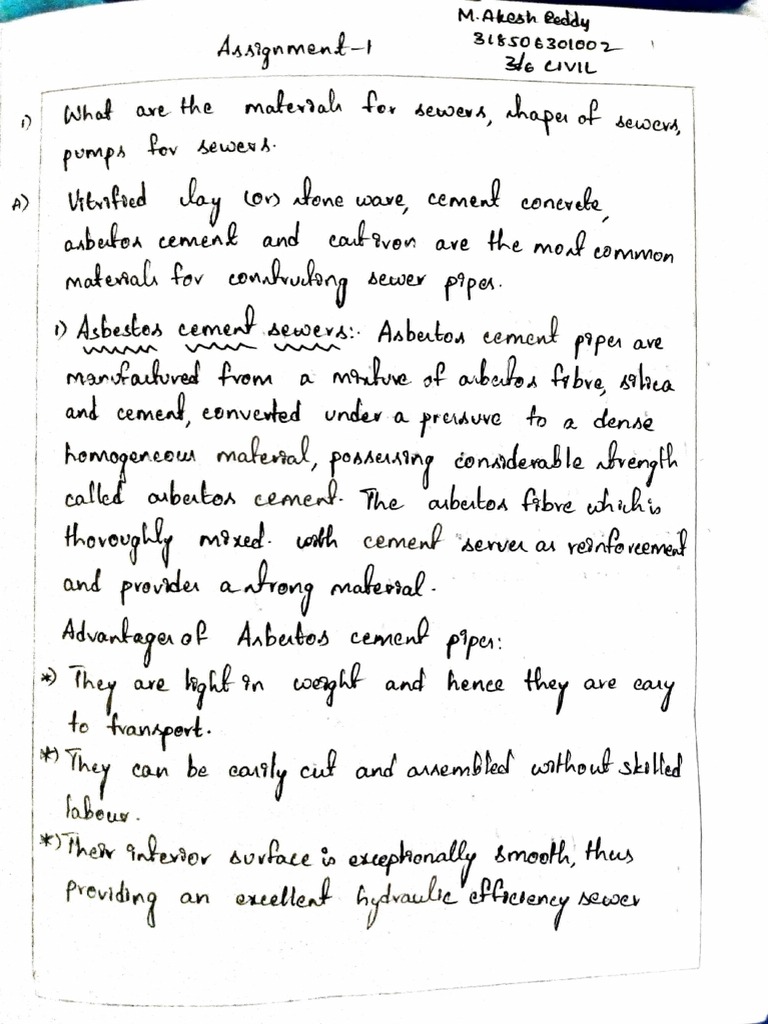 M. Akesh Reddy
318506301002
3/6 CIVIL
Assignment-1
1) What are the materials for sewers, shapes of sewers,
pumps for sewers.
A) Vitrified clay (or) stone ware, cement concrete,
asbestos cement and cast iron are the most common
materials for constructing sewer pipes.
1) Asbestos cement sewers:- Asbestos cement pipes are
manufactured from a mixture of asbestos fibre, silica
and cement, converted under a pressure to a dense
homogeneous material, possessing considerable strength
called asbestos cement. The asbestos fibre which is
thoroughly mixed. with cement serves as reinforcement
and provides a strong material.
Advantages of Asbestos cement pipes:
*) They are light in weight and hence they are easy
to transport.
*) They can be easily cut and assembled without skilled
labour.
*) Their interior surface is exceptionally smooth, thus
providing an excellent hydraulic efficiency sewer